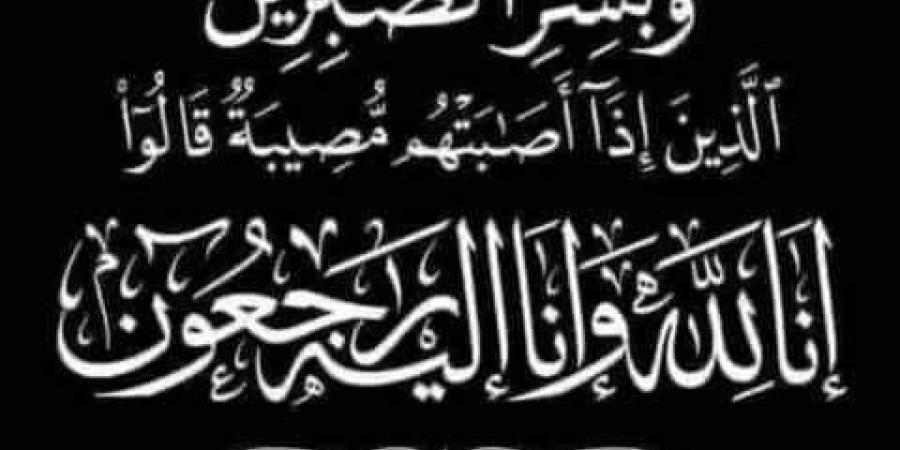 وَبَشِّرِ الصَّٰبِرِينَ
ٱلَّذِينَ إِذَآ أَصَٰبَتْهُم مُّصِيبَةٌ قَالُوٓا۟
إنا لله وإنا إليه راجعون